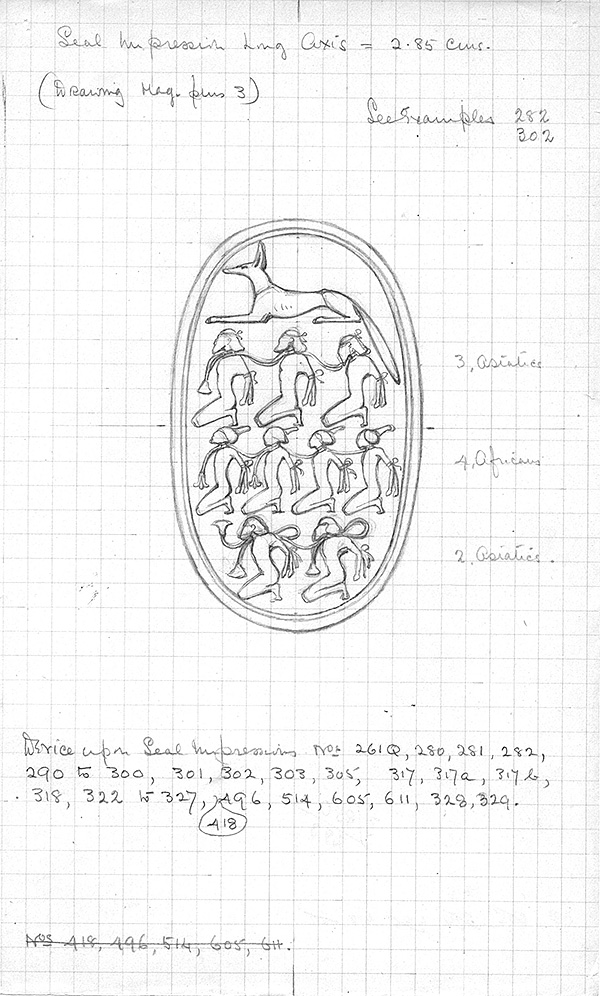 Seal Impression Long Axis = 2.85 cms.
(Drawing Mag. plus 3)
See Examples 282
302
3, Asiatics
4, Africans
2, Asiatics.
Device upon Seal Impressions Nos 261Q, 280, 281, 282,
290 to 300, 301, 302, 303, 305, 317, 317a, 317b,
318, 322 to 327, 496, 514, 605, 611, 328, 329.
418
Nos 418, 496, 514, 605, 611.